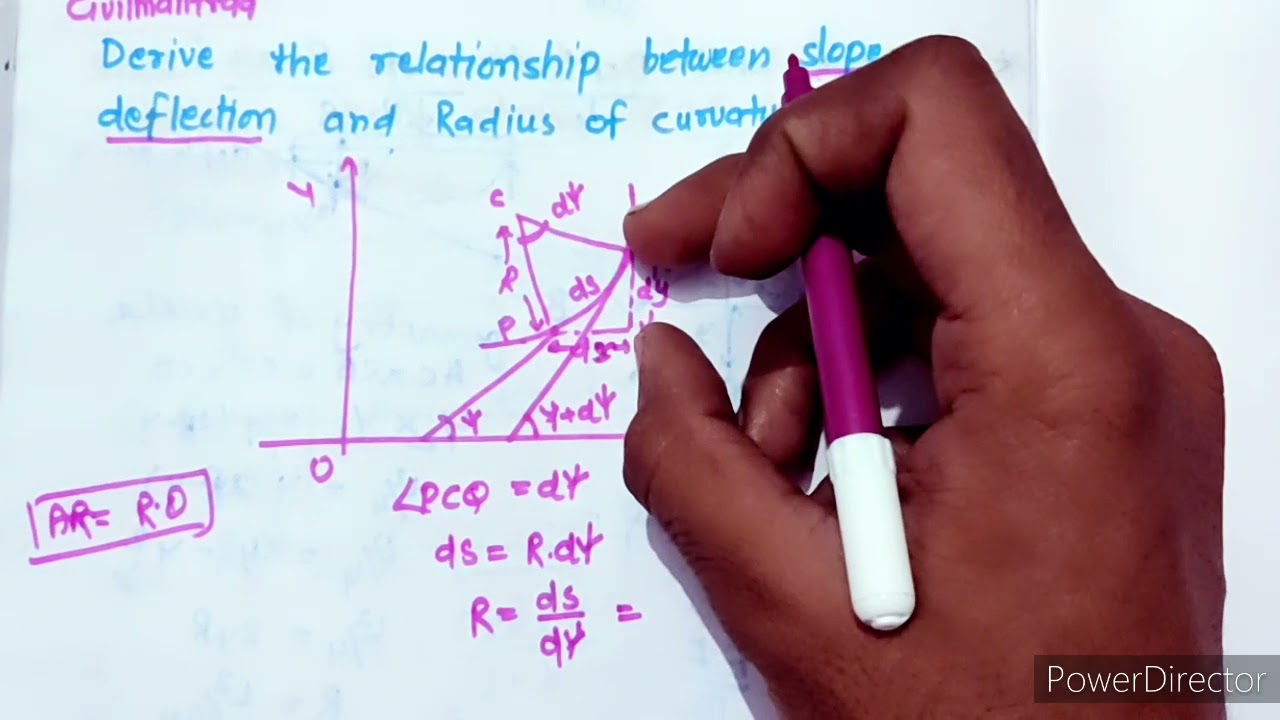 Derive the relationship between slope
deflection and Radius of curvatu
Y
C
dψ
R
ds
dy
P
dx
ψ
ψ+dψ
O
AR = R.θ
∠PCQ = dψ
ds = R.dψ
R = ds/dψ =
PowerDirector